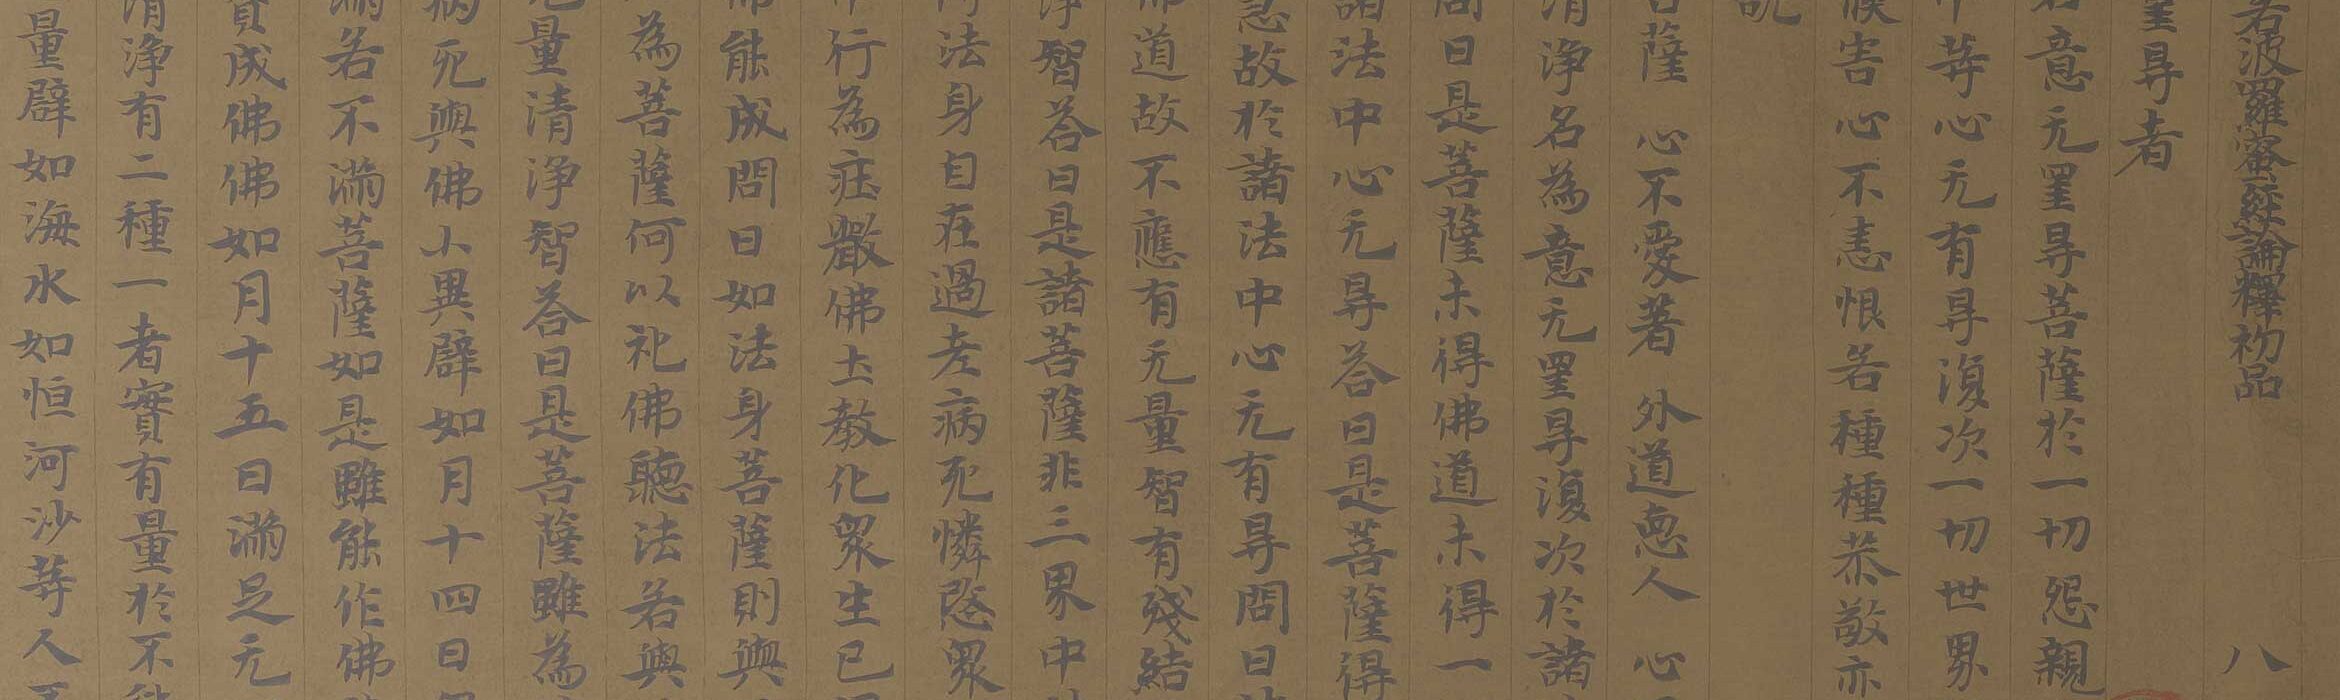 若波羅蜜經論釋初品 八
罣㝵者
意无罣㝵菩薩於一切怨親
中等心无有㝵復次一切世界
害心不恚恨若種種恭敬亦
說
菩薩 心不愛著 外道惡人 心
清淨名為意无罣㝵復次於諸
問曰是菩薩未得佛道未得一
諸法中心无㝵荅曰是菩薩得
慧故於諸法中心无有㝵問曰
佛道故不應有无量智有殘結
淨智荅曰是諸菩薩非三界中
法身自在過老病死憐愍衆
行為莊嚴佛土教化衆生已
能成問曰如法身菩薩則與
為菩薩何以礼佛聽法若與
无量清淨智荅曰是菩薩雖為
病死與佛小異辟如月十四日
滿若不滿菩薩如是雖能作佛
實成佛佛如月十五日滿足无
清淨有二種一者實有量於不
量辟如海水如恒河沙等人